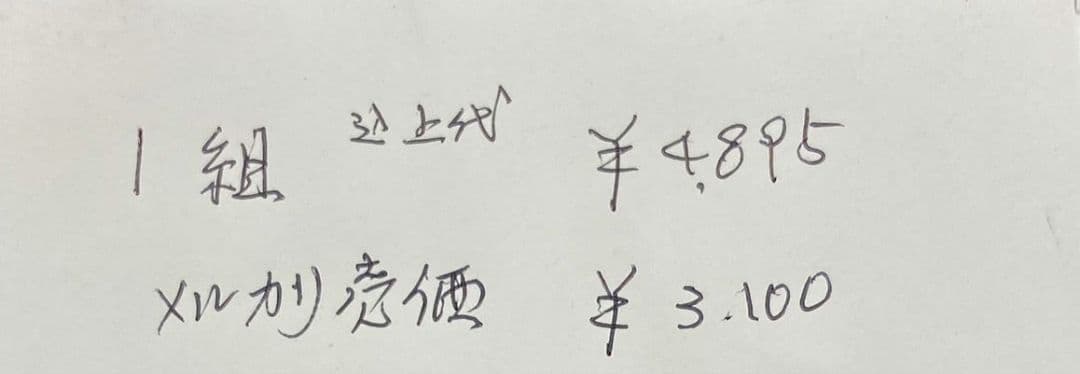 1組 込上代 ¥4,895
メルカリ売価 ¥3.100